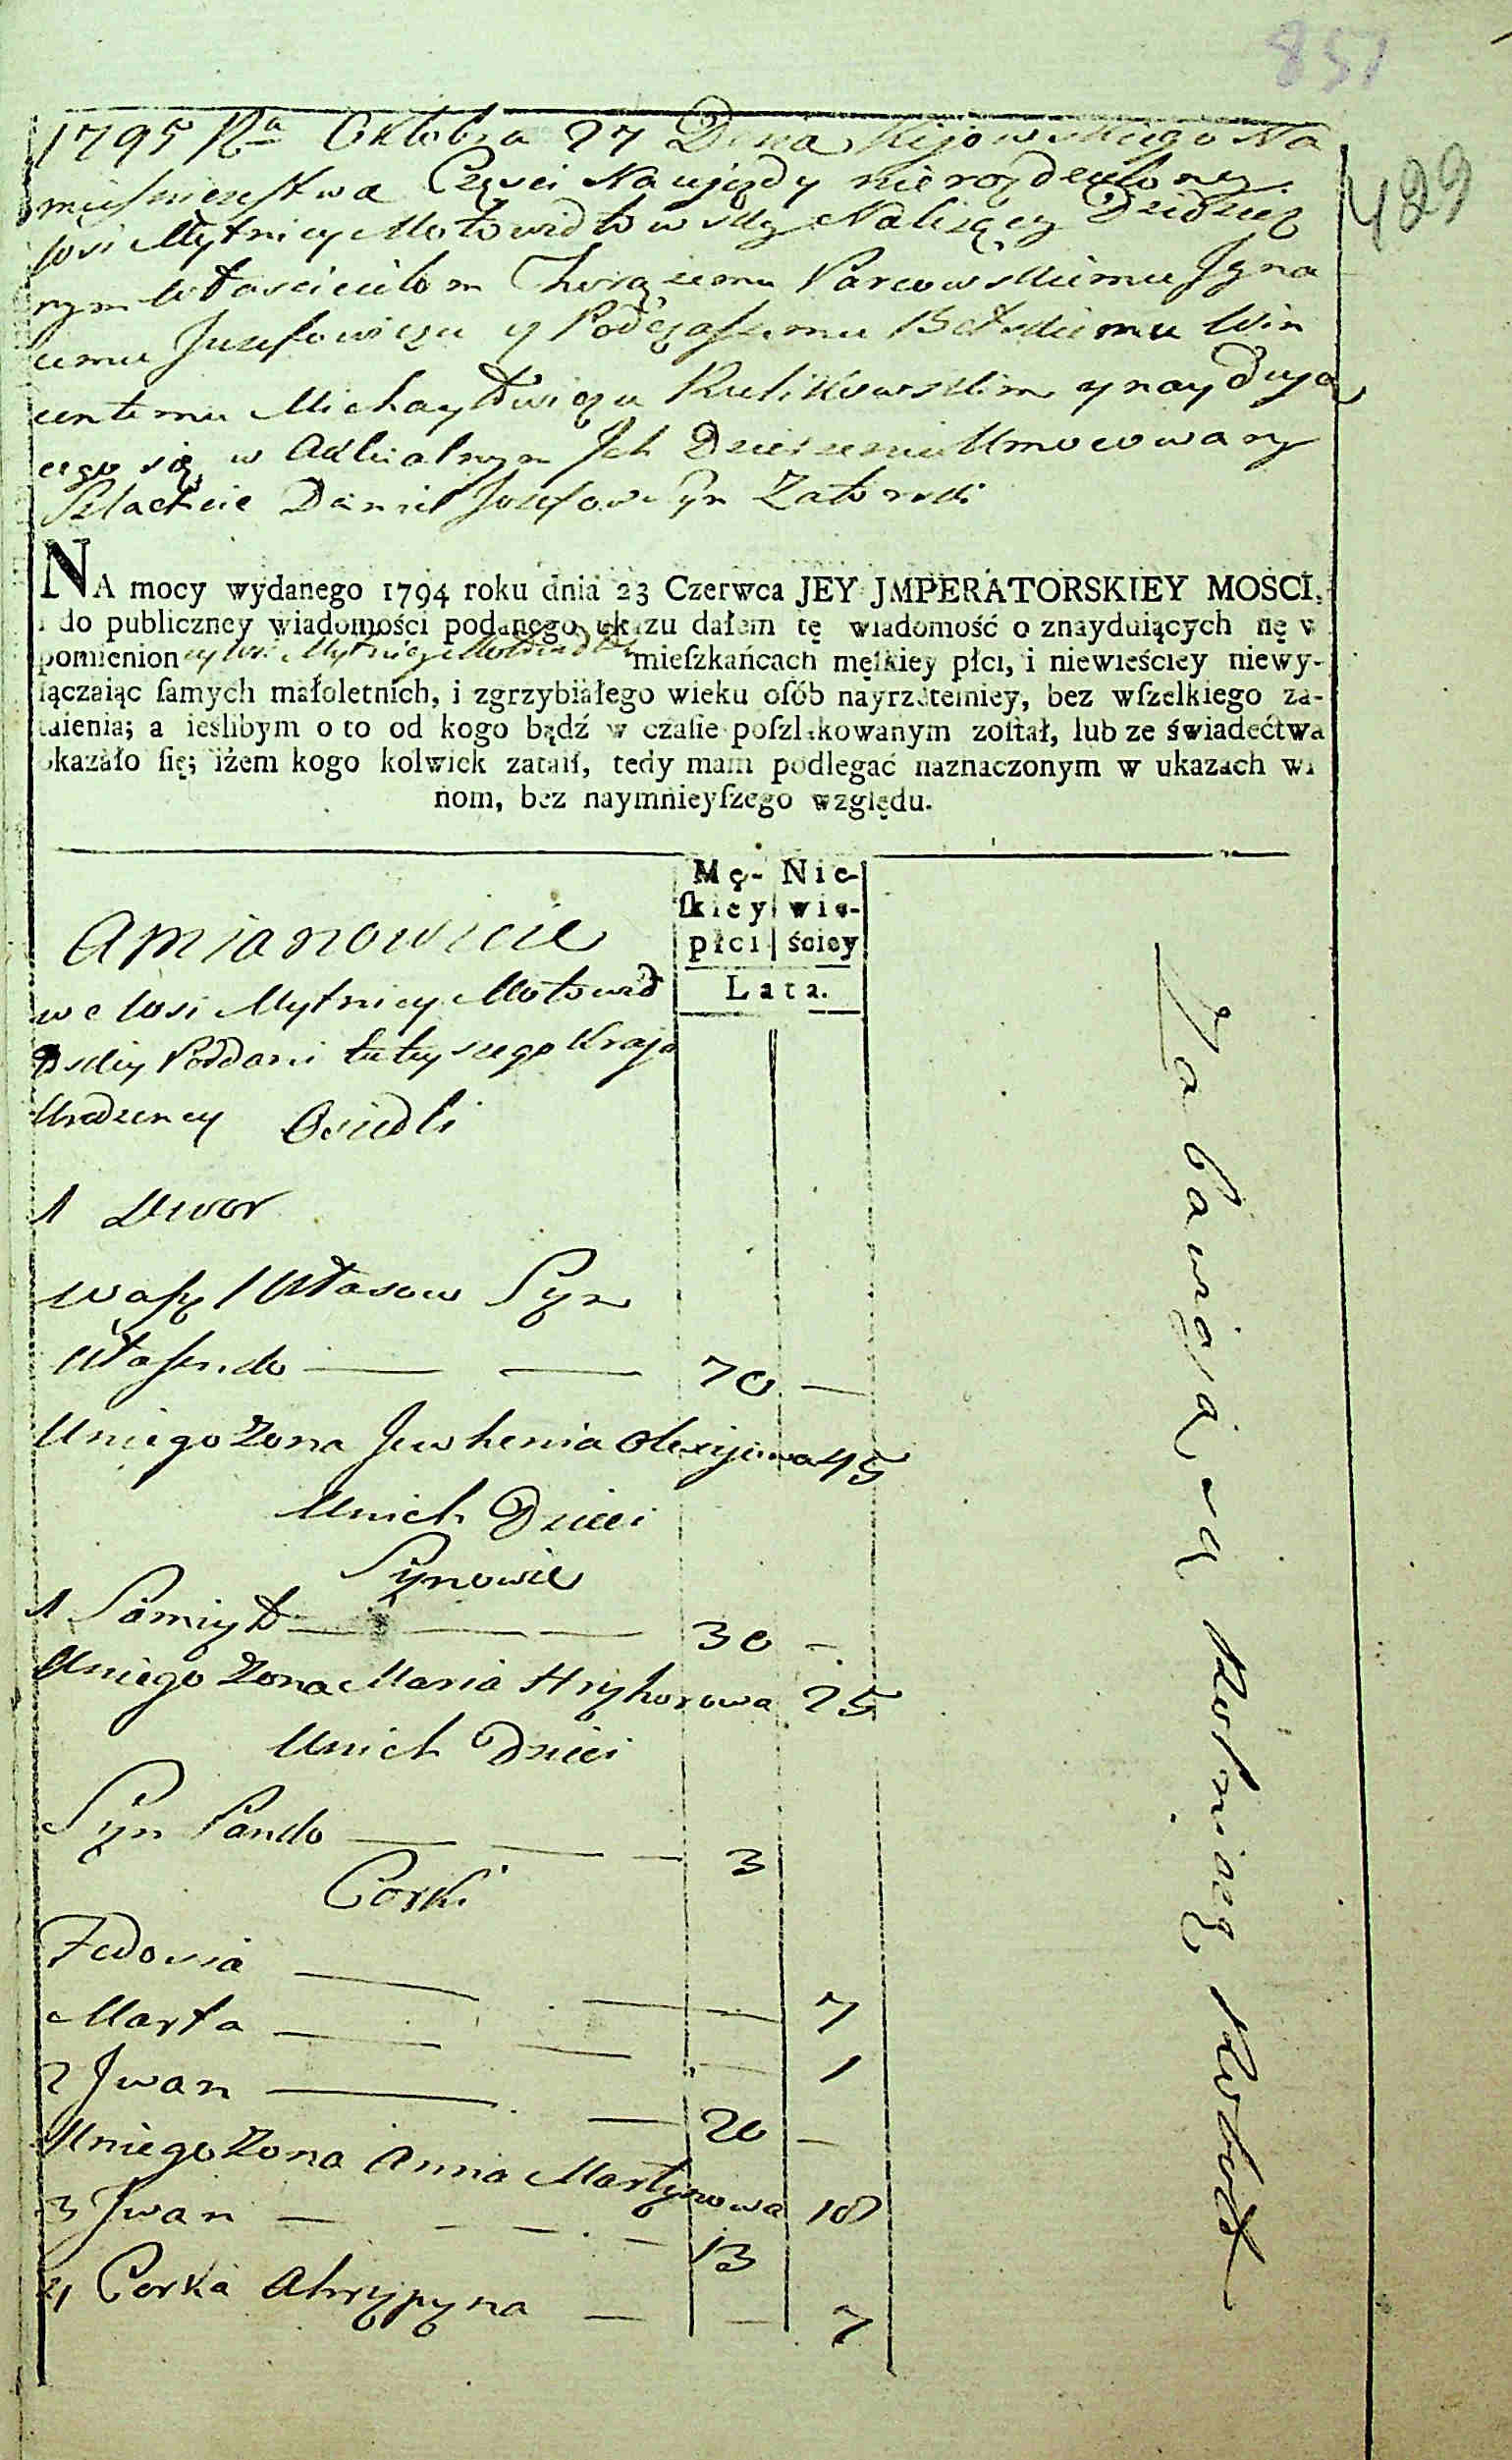 851
489
1795 Ra Oktobra 27 Dnia Kijowskiego Na
miesniczestwa Części Na ujezdy nierozdzieloney
wsi Mytnicy Motowidłowsky Należącey Dziedzicz
nym Własicielom Chorążemu Parcowskiemu Igna
cemu Juzefowiczu y Podczaszemu Bełskiemu Win
centemu Michayłowiczu Kulikowskim znayduią
cego się w Ich Umocowany
Szlachcic Daniel Josefow Syn Zatorski
NA mocy wydanego 1794 roku dnia 23 Czerwca JEY JMPERATORSKIEY MOSCI,
i do publiczney wiadomości podanego ukazu dałem tę wiadomość o znayduiących ſię w
pomienioney wsi Mytnicy Motowidłow mieſzkańcach męſkiey płci, i niewieściey niewy-
łączaiąc ſamych małoletnich, i zgrzybiałego wieku oſób nayrzetelniey, bez wſzelkiego za-
taienia; a ieślibym o to od kogo bądź w czaſie poſzlakowanym zoſtał, lub ze świadećtwa
okazało ſię; iżem kogo kolwiek zataił, tedy mam podlegać naznaczonym w ukazach wi
nom, bez naymnieyſzego względu.
Mę- Nie-
ſkiey wie-
płci ściey
Lata.
Amianowicie
we wsi Mytnicy Motowid
łskiey Poddani tuteyszego Kraju
Urodzency Osiedli
1 Dwor
Wasyl Własow Syn
Własenko — — 70 —
Uniego Zona Jewhenia Olexijowa 45
Unich Dzieci
Synowie
1 Samiyło — — — 30 —
Uniego Zona Maria Hryhorowa 25
Unich Dzieci
Syn Panko — — — 3
Corki
Fedosia — — — 7
Marta — — — 1
2 Jwan — — 20 —
Uniego Zona Anna Martynowa 18
3 Jwan — — — — 13
4 Corka Ahrypyna — — 7
Zabawiaią się Rolniczą Robotą